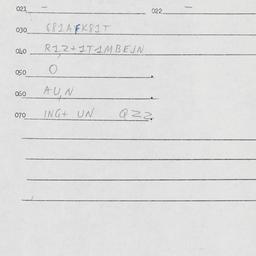 021 — 022 —
030 C81AFK81T
040 R1,Z+1T1MBEJN
050 O
060 AU,N
070 ING+ UN QZZ